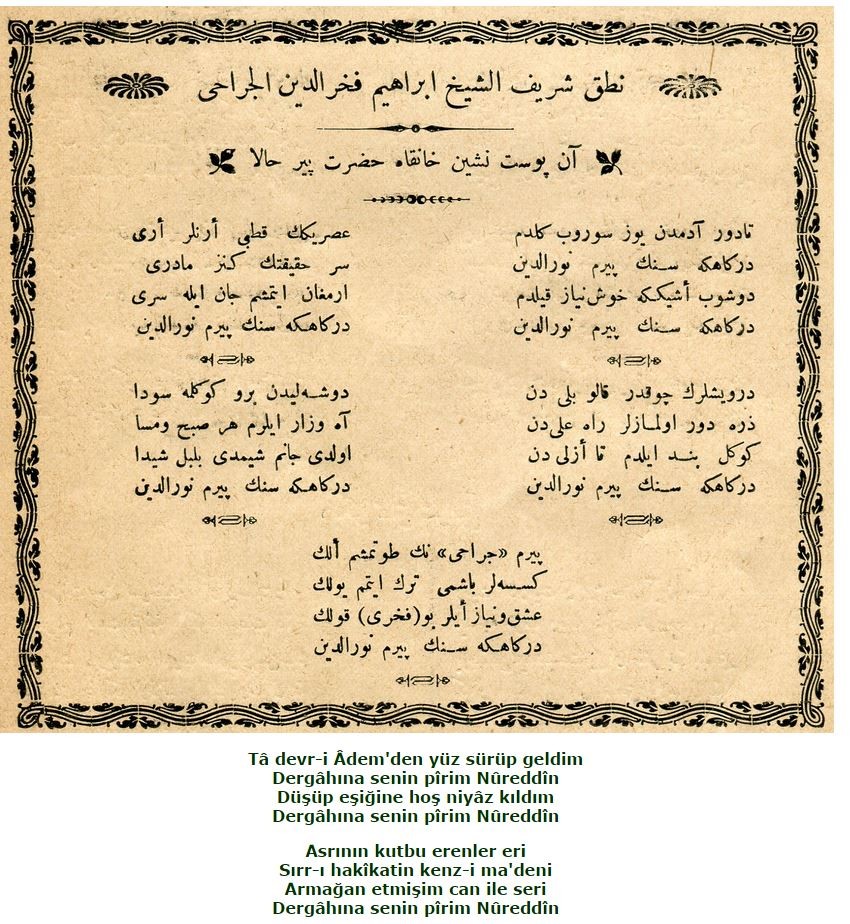 نطق شريف الشيخ ابراهيم فخرالدين الجراحى
آن پوست نشين خانقاه حضرت پير حالا
تادور آدمدن يوز سوروب كلدم
دركاهكه سنك پيرم نورالدين
دوشوب أشيككه خوش نياز قيلدم
دركاهكه سنك پيرم نورالدين
عصريكك قطبى أرنلر أرى
سر حقيقتك كنز مادرى
ارمغان ايتمشم جان ايله سرى
دركاهكه سنك پيرم نورالدين
درويشلرك چوقدر قالو بلى دن
ذره دور اولمازلر راه على دن
كوكل بند ايلدم تا أزلى دن
دركاهكه سنك پيرم نورالدين
دوشه ليدن برو كوكلمه سودا
آه وزار ايلرم هر صبح ومسا
اولدى جانم شيمدى بلبل شيدا
دركاهكه سنك پيرم نورالدين
پيرم «جراحى» نك طوتمشم ألك
كسسه لر باشمى ترك ايتمم يولك
عشق ونياز أيلر بو(فخرى) قولك
دركاهكه سنك پيرم نورالدين
Tâ devr-i Âdem'den yüz sürüp geldim
Dergâhına senin pîrim Nûreddîn
Düşüp eşiğine hoş niyâz kıldım
Dergâhına senin pîrim Nûreddîn
Asrının kutbu erenler eri
Sırr-ı hakîkatin kenz-i ma'deni
Armağan etmişim can ile seri
Dergâhına senin pîrim Nûreddîn